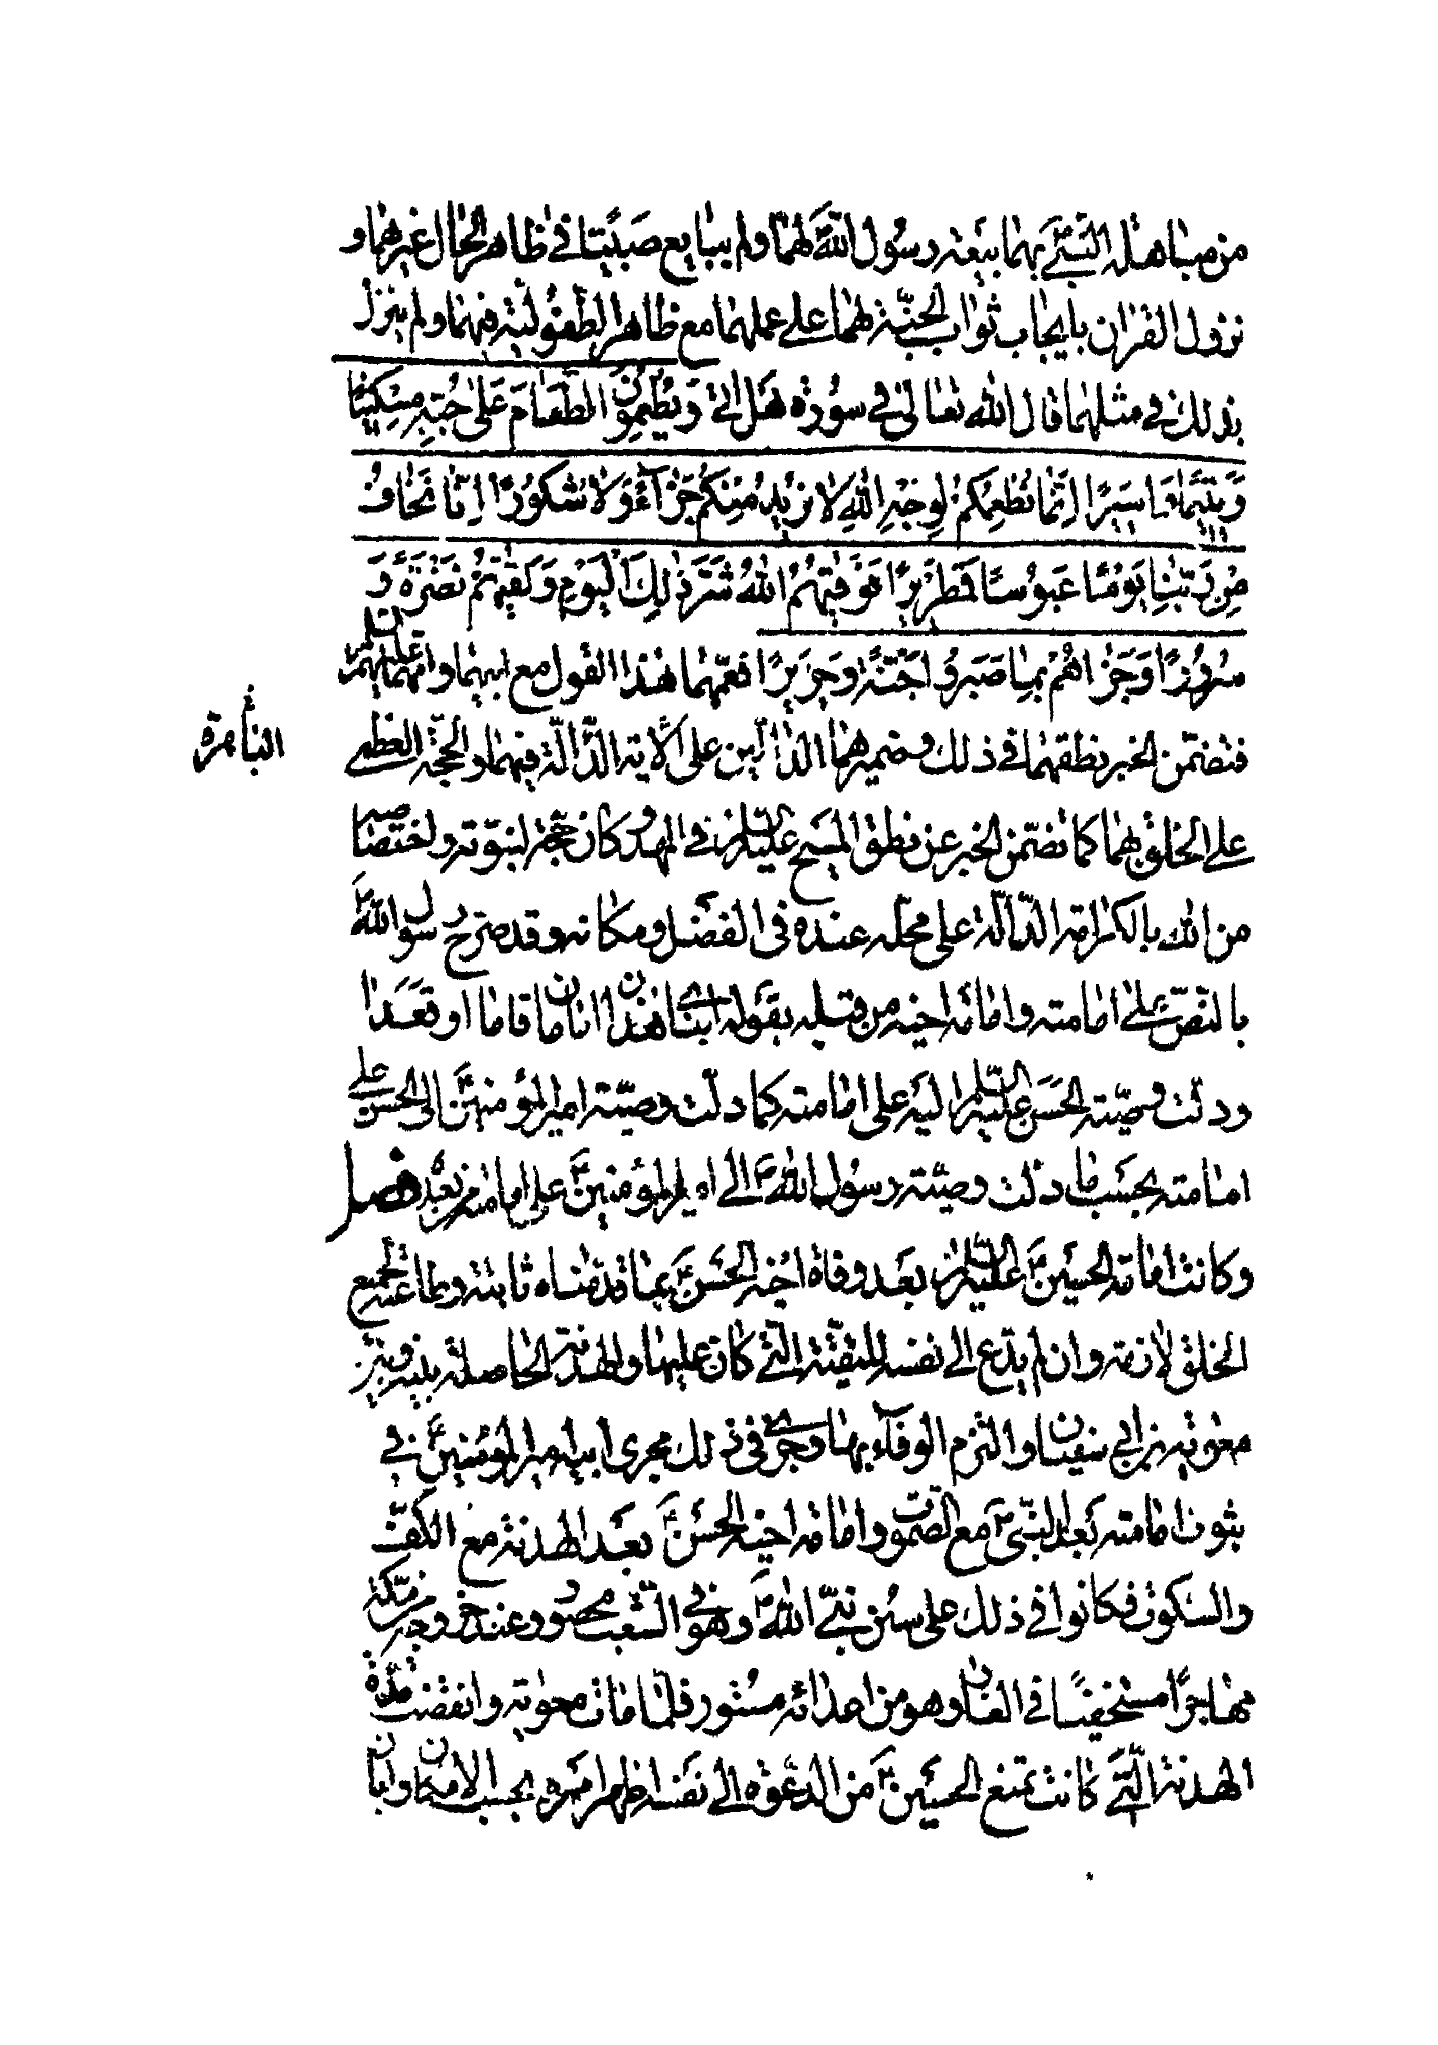 من مباهلة النبي بهما بيعة رسول الله لهما ولم يبايع صبيا في ظاهر الحال غيرهما و
نزول القران بايجاب ثواب الجنة لهما على عملهما مع ظاهر الطفولية فيهما ولم ينزل
بذلك في مثلهما قال الله تعالى في سورة هل اتى وَيُطْعِمُونَ الطَّعَامَ عَلَى حُبِّهِ مِسْكِينًا
وَيَتِيمًا وَاَسِيرًا اِنَّمَا نُطْعِمُكُمْ لِوَجْهِ اللهِ لَا نُرِيدُ مِنْكُمْ جَزَآءً وَلَا شُكُورًا اِنَّا نَخَافُ
مِنْ رَبِّنَا يَوْمًا عَبُوسًا قَمْطَرِيرًا فَوَقٰيهُمُ اللهُ شَرَّ ذٰلِكَ الْيَوْمِ وَلَقّٰيهُمْ نَضْرَةً وَ
سُرُورًا وَجَزَاهُمْ بِمَا صَبَرُوا جَنَّةً وَحَرِيرًا فعمهما هذا القول مع ابيهما وامهما عليهم السلم
فتضمن الخبر نطقهما في ذلك وضميرهما الدالين على الآية الدالة فيهما والحجة العظمى
الباهرة
على الخلق بهما كما تضمن الخبر عن نطق المسيح عليه السلم في المهد وكان حجة لنبوته واختصاصه
من الله بالكرامة الدالة على محله عنده في الفضل ومكانه وقد صرح رسول الله
بالنص على امامته وامامة اخيه من قبله بقوله ابناي هذان امامان قاما او قعدا
ودلت وصية الحسن عليه السلم اليه على امامته كما دلت وصية امير المؤمنين الى الحسن على
امامته بحسب ما دلت وصية رسول الله الى امير المؤمنين على امامته من بعده فصل
وكانت امامة الحسين عليه السلم بعد وفاة اخيه الحسن بما قدمناه ثابتة وطاعته لجميع
الخلق لازمة وان لم يدع الى نفسه للتقية التي كان عليها والهدنة الحاصلة بينه وبين
معوية بن ابي سفين والتزم الوفاء بها وجرى في ذلك مجرى ابيه امير المؤمنين في
ثبوت امامته بعد النبي مع الصموت وامامة اخيه الحسن بعد الهدنة مع الكف
والسكوت فكانوا في ذلك على سنن نبي الله وهو في الشعب محصور وعند خروجه من مكة
مهاجرا مستخفيا في الغار وهو من اعدائه مستور فلما مات معوية وانقضت مدة
الهدنة التي كانت تمنع الحسين من الدعوة الى نفسه اظهر امره بحسب الامكان وابان